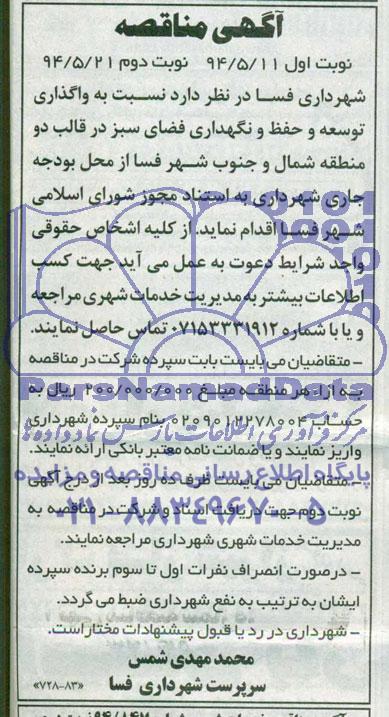 آگهی مناقصه
نوبت اول ۹۴/۵/۱۱ نوبت دوم ۹۴/۵/۲۱
شهرداری فسا در نظر دارد نسبت به واگذاری
توسعه و حفظ و نگهداری فضای سبز در قالب دو
منطقه شمال و جنوب شهر فسا از محل بودجه
جاری شهرداری به استناد مجوز شورای اسلامی
شهر فسا اقدام نماید. از کلیه اشخاص حقوقی
واجد شرایط دعوت به عمل می آید جهت کسب
اطلاعات بیشتر به مدیریت خدمات شهری مراجعه
و یا با شماره ۰۷۱۵۳۳۳۱۹۱۲ تماس حاصل نمایند.
- متقاضیان می بایست بابت سپرده شرکت در مناقصه
به ازاء هر منطقه مبلغ ۲۰۰/۰۰۰/۰۰۰ ریال به
حساب ۰۲۰۹۰۱۲۲۷۸۰۰۴ بنام سپرده شهرداری
واریز نمایند و یا ضمانت نامه معتبر بانکی ارائه نمایند.
- متقاضیان می بایست ظرف ده روز بعد از درج آگهی
نوبت دوم جهت دریافت اسناد و شرکت در مناقصه به
مدیریت خدمات شهری شهرداری مراجعه نمایند.
- درصورت انصراف نفرات اول تا سوم برنده سپرده
ایشان به ترتیب به نفع شهرداری ضبط می گردد.
- شهرداری در رد یا قبول پیشنهادات مختار است.
محمد مهدی شمس
سرپرست شهرداری فسا
«۷۲۸-۸۳»
ParsNamadData
مرکز فرآوری اطلاعات پارس نماد داده ها
پایگاه اطلاع رسانی مناقصه و مزایده
۰۲۱-۸۸۳۴۹۶۷۰-۵